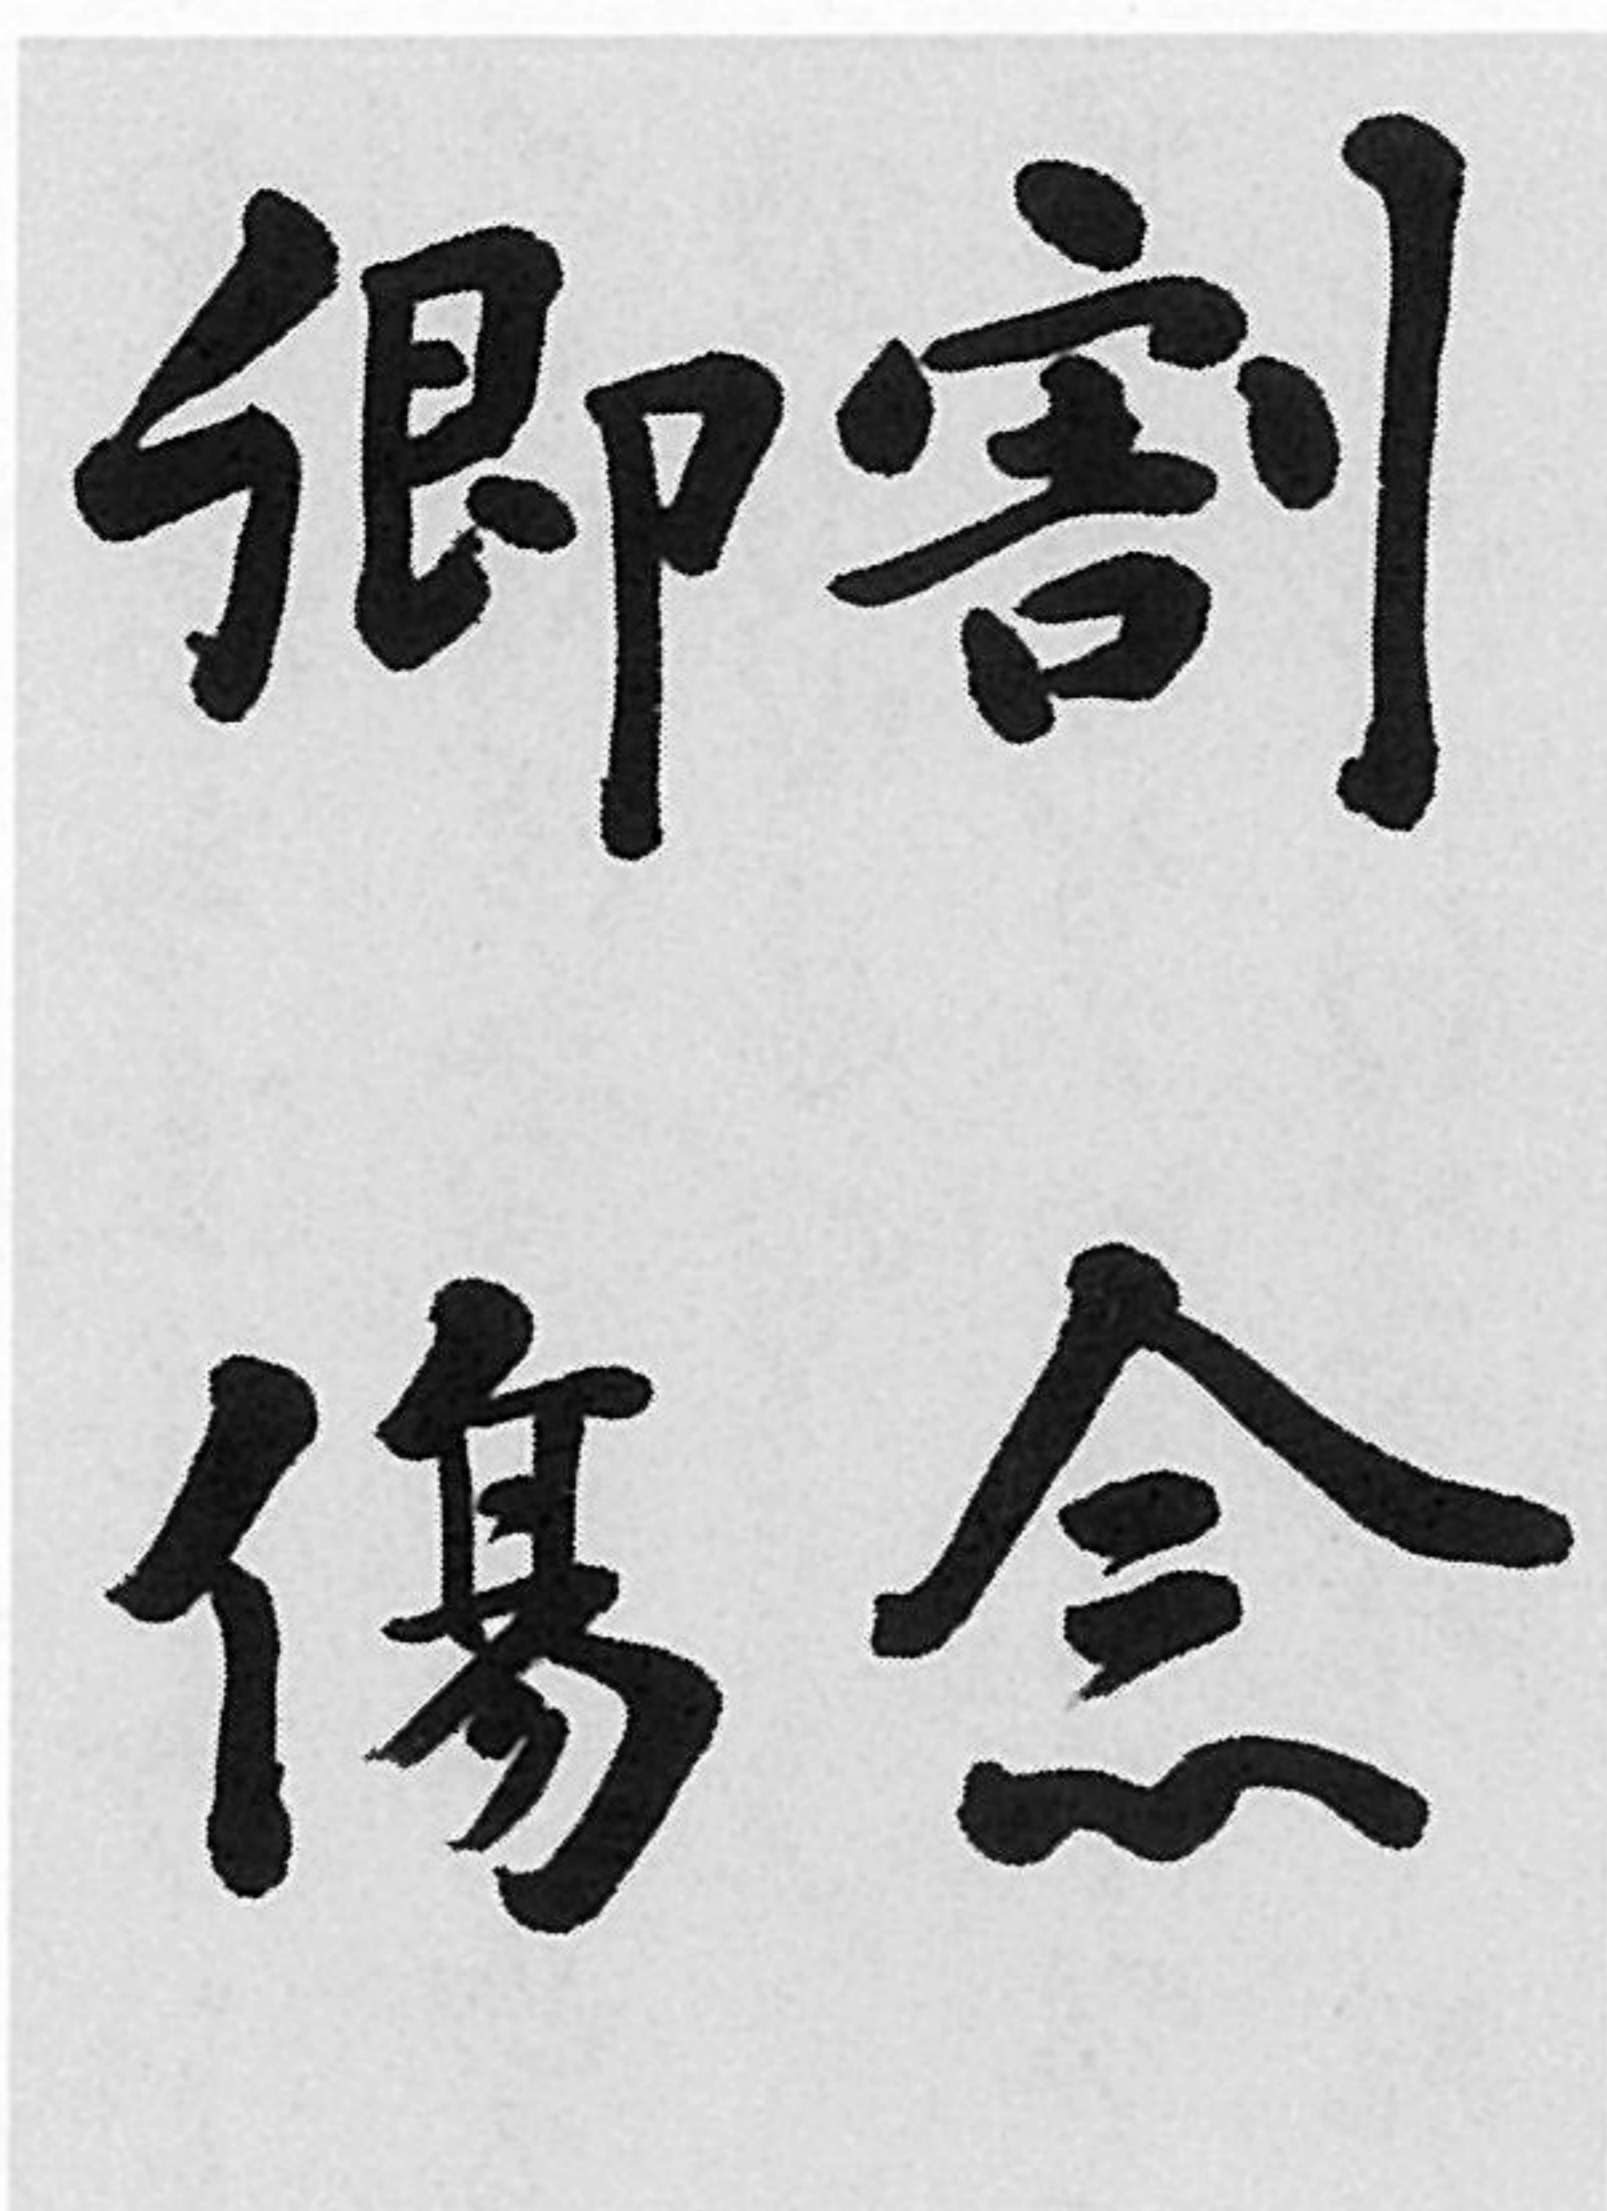 割念
卿傷